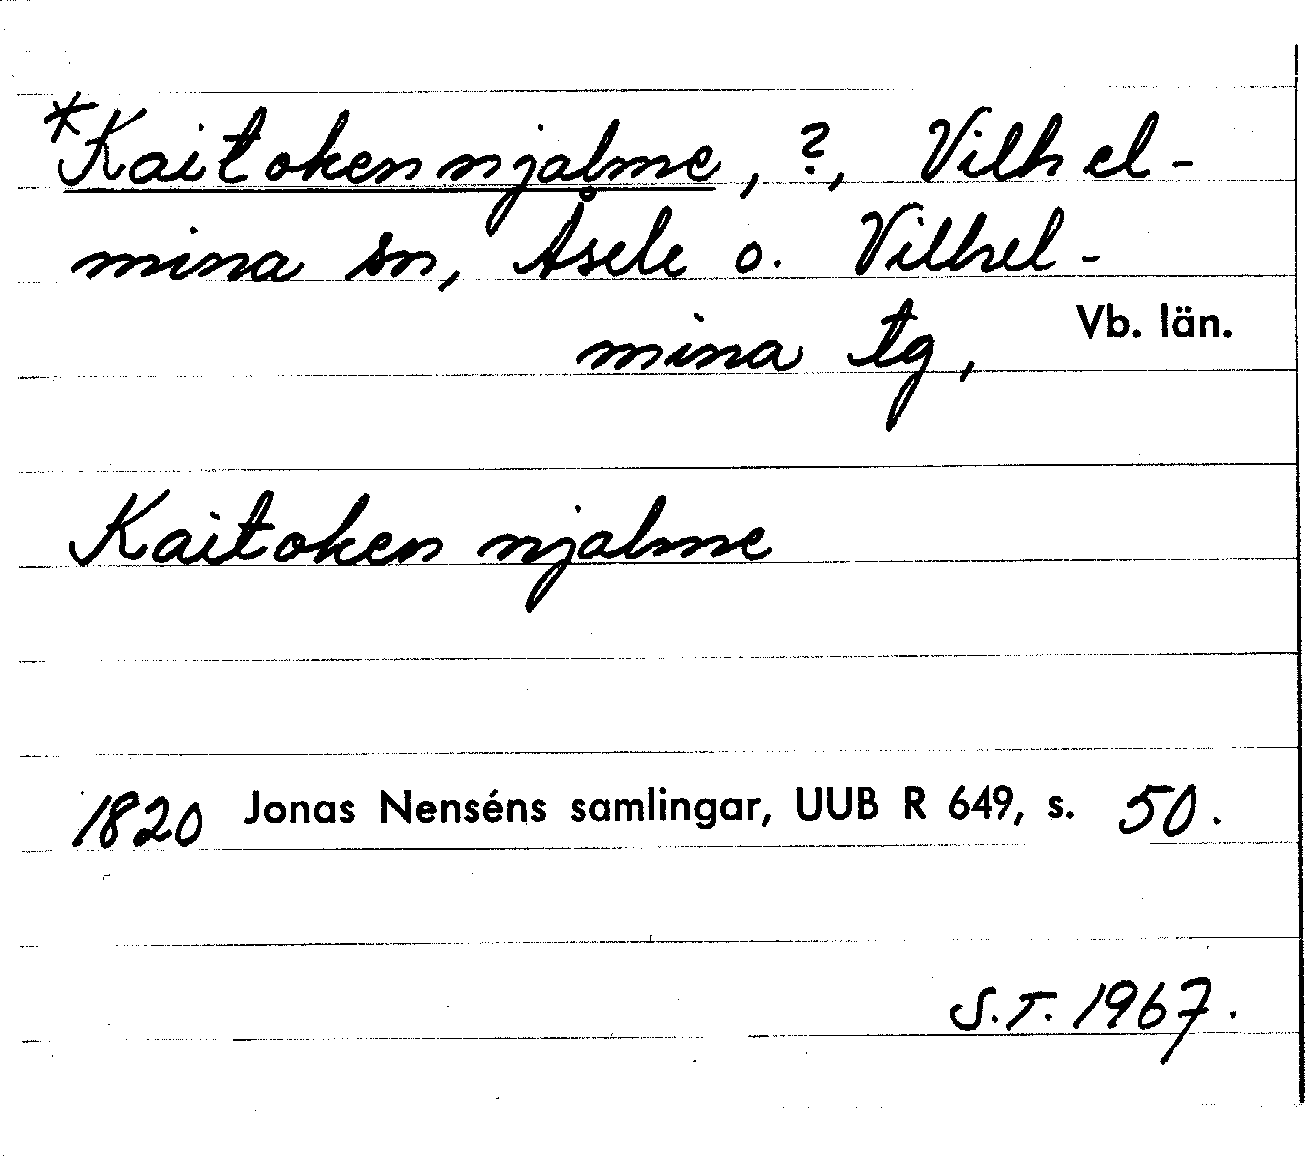 *Kaitokennjalme, ?, Vilhel-
mina sn, Åsele o. Vilhel-
mina tg, Vb. län.
Kaitoken njalme
1820 Jonas Nenséns samlingar, UUB R 649, s. 50.
S.T. 1967.